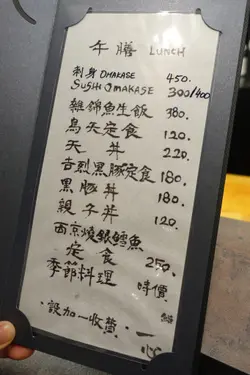 午膳 LUNCH
刺身 OMAKASE 450.
SUSHI OMAKASE 300/400
雜錦魚生飯 380.
烏天定食 120.
天丼 220.
吉烈黑豚定食 180.
黑豚丼 180.
親子丼 120.
西京燒銀鱈魚
定食 250.
季節料理 時價
·設加一收費·
一心